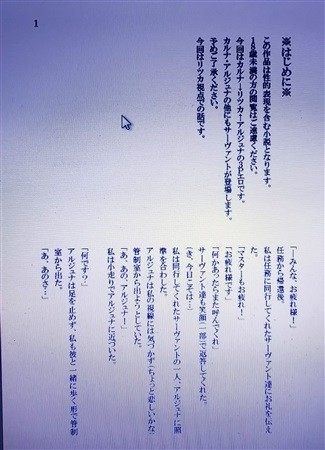 1
※はじめに※
この作品は性的表現を含む小説となります。
18歳未満の方の閲覧はご遠慮ください。
今回はカルナ→リツカ←アルジュナの3Pエロです。
カルナ・アルジュナの他にもサーヴァントが登場します。
予めご了承ください。
今回はリツカ視点での話です。
「―みんな、お疲れ様!」
任務から帰還後、
私は任務に同行してくれたサーヴァント達にお礼を伝え
た。
「マスターもお疲れ!」
「お疲れ様です」
「何かあったらまた呼んでくれ」
サーヴァント達も笑顔(一部)で返答してくれた。
(き、今日こそは…)
私は同行してくれたサーヴァントの一人、アルジュナに照
準を合わした。
アルジュナは私の視線には気づかず(ちょっと悲しいかな)
管制室から出ようとしていた。
「あ、あの、アルジュナ!」
私は小走りでアルジュナに近づいた。
「何です?」
アルジュナは足を止めず、私も彼と一緒に歩く形で管制
室から出た。
「あ、あのさ…」